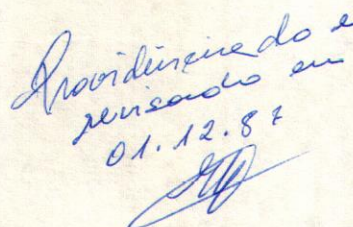 Providenciado e
revisado em
01.12.87